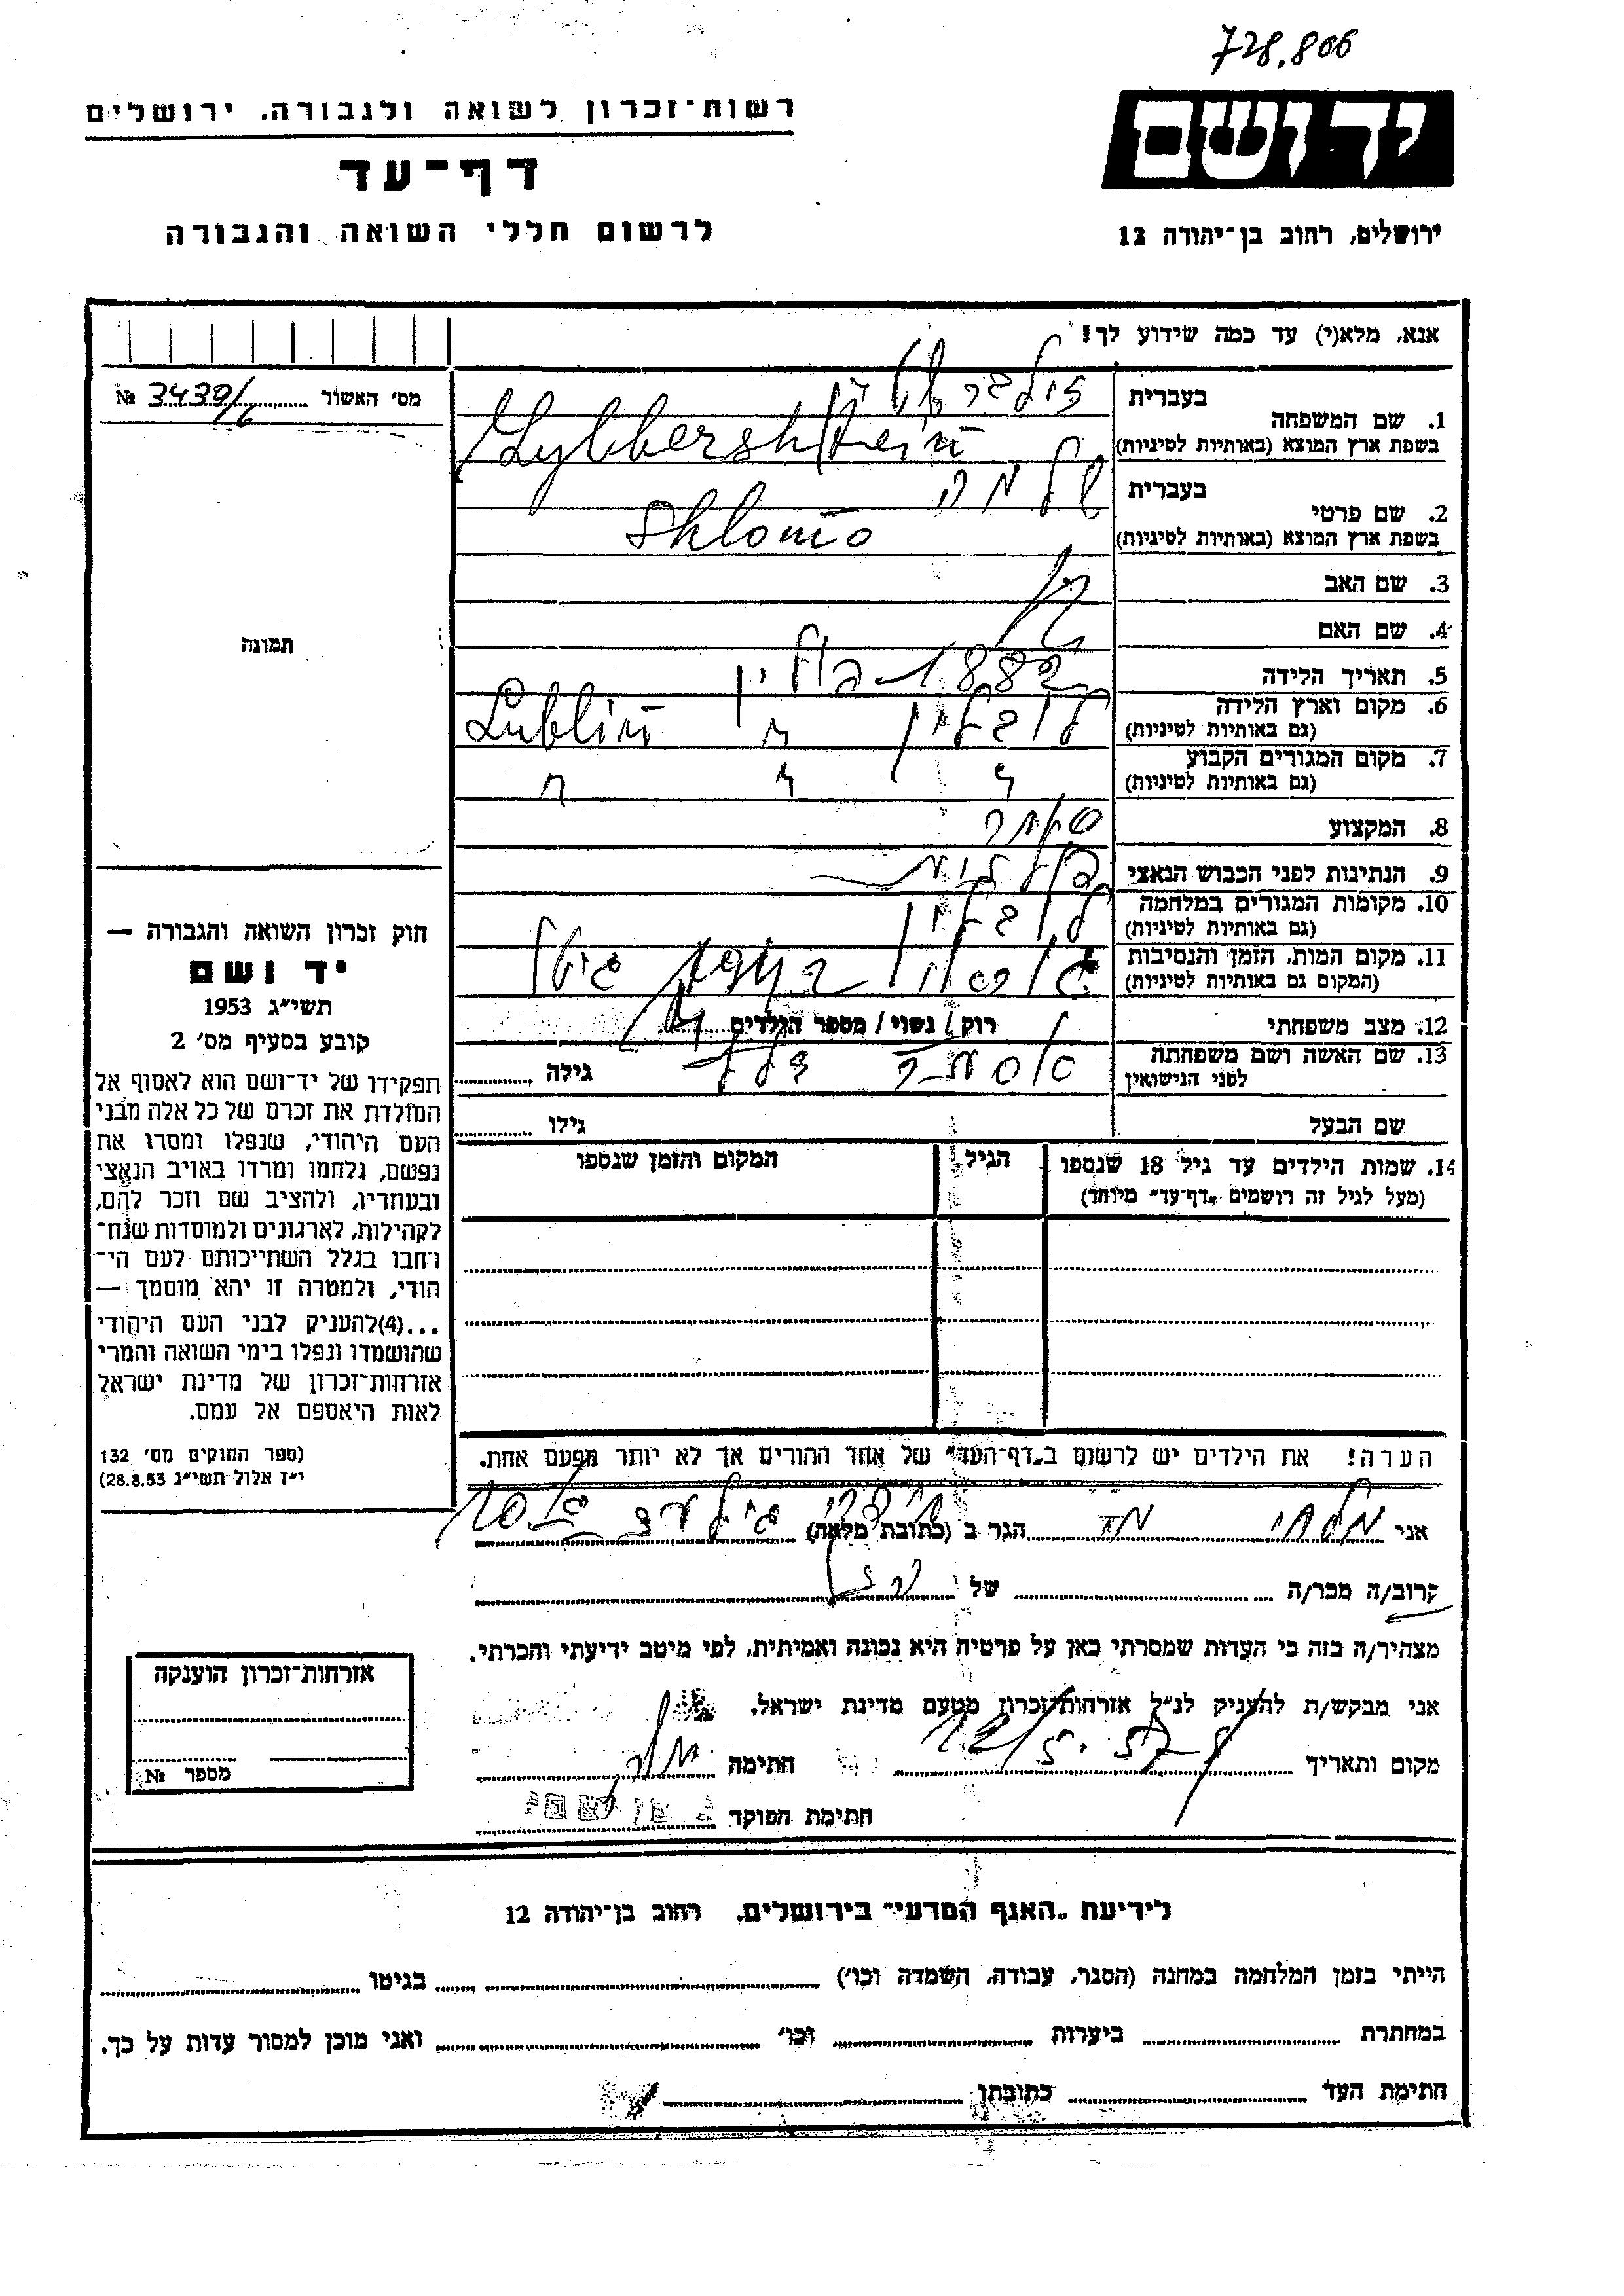 728.806
רשות־זכרון לשואה ולגבורה, ירושלים
דף־עד
לרשום חללי השואה והגבורה
ידושם
ירושלים, רחוב בן־יהודה 12
אנא, מלא(י) עד כמה שידוע לך!
מס׳ האשור 3439/6 №
בעברית
1. שם המשפחה
בשפת ארץ המוצא (באותיות לטיניות)
זילברשטיין
Zylbbershtein
בעברית שלמה
2. שם פרטי
בשפת ארץ המוצא (באותיות לטיניות) Shlomo
3. שם האב
4. שם האם
5. תאריך הלידה 1882
6. מקום וארץ הלידה
(גם באותיות לטיניות) לובלין Lublin
7. מקום המגורים הקבוע
(גם באותיות לטיניות) " " "
8. המקצוע סוחר
9. הנתינות לפני הכבוש הנאצי
10. מקומות המגורים במלחמה
(גם באותיות לטיניות) לובלין
11. מקום המות, הזמן והנסיבות
(המקום גם באותיות לטיניות)
12. מצב משפחתי רוק / נשוי / מספר הילדים
13. שם האשה ושם משפחתה
לפני הנישואין גילה
שם הבעל גילו
14. שמות הילדים עד גיל 18 שנספו הגיל המקום והזמן שנספו
(מעל לגיל זה רושמים „דף־עד״ מיוחד)
תמונה
חוק זכרון השואה והגבורה —
יד ושם
תשי״ג 1953
קובע בסעיף מס׳ 2
תפקידו של יד־ושם הוא לאסוף אל
המולדת את זכרם של כל אלה מבני
העם היהודי, שנפלו ומסרו את
נפשם, נלחמו ומרדו באויב הנאצי
ובעוזריו, ולהציב שם וזכר להם,
לקהילות, לארגונים ולמוסדות שנח־
רבו בגלל השתייכותם לעם הי־
הודי, ולמטרה זו יהא מוסמך —
...(4)להעניק לבני העם היהודי
שהושמדו ונפלו בימי השואה והמרי
אזרחות־זכרון של מדינת ישראל
לאות היאספם אל עמם.
(ספר החוקים מס׳ 132
י״ז אלול תשי״ג 28.8.53)
הערה! את הילדים יש לרשום ב„דף־העד״ של אחד ההורים אך לא יותר מפעם אחת.
אני הגר ב (כתובת מלאה)
קרוב/ה מכר/ה של
מצהיר/ה בזה כי העדות שמסרתי כאן על פרטיה היא נכונה ואמיתית, לפי מיטב ידיעתי והכרתי.
אני מבקש/ת להעניק לנ״ל אזרחות־זכרון מטעם מדינת ישראל.
מקום ותאריך 12/5.57 חתימה
חתימת הפוקד
אזרחות־זכרון הוענקה
מספר №
לידיעת „האגף המדעי״ בירושלים, רחוב בן־יהודה 12
הייתי בזמן המלחמה במחנה (הסגר, עבודה, השמדה וכו׳) בגיטו
במחתרת ביערות וכו׳ ואני מוכן למסור עדות על כך.
חתימת העד כתובתו